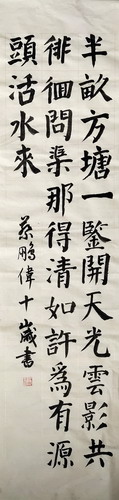 半畝方塘一鑒開天光雲影共
徘徊問渠那得清如許為有源
頭活水來
蔡鵬偉十歲書